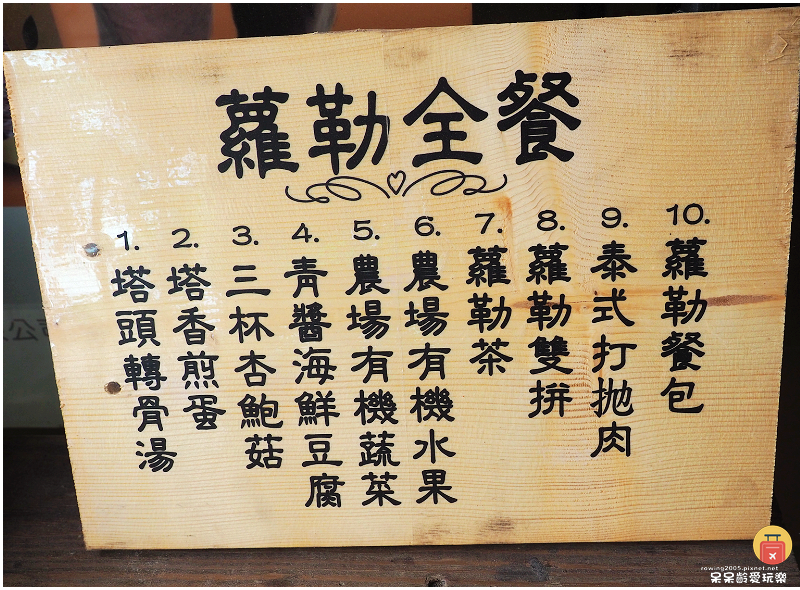 蘿勒全餐
1. 塔頭轉骨湯
2. 塔香煎蛋
3. 三杯杏鮑菇
4. 青醬海鮮豆腐
5. 農場有機蔬菜
6. 農場有機水果
7. 蘿勒茶
8. 蘿勒雙拼
9. 泰式打拋肉
10. 蘿勒餐包
公司
rowing2005.pixnet.net
呆呆齡愛玩樂